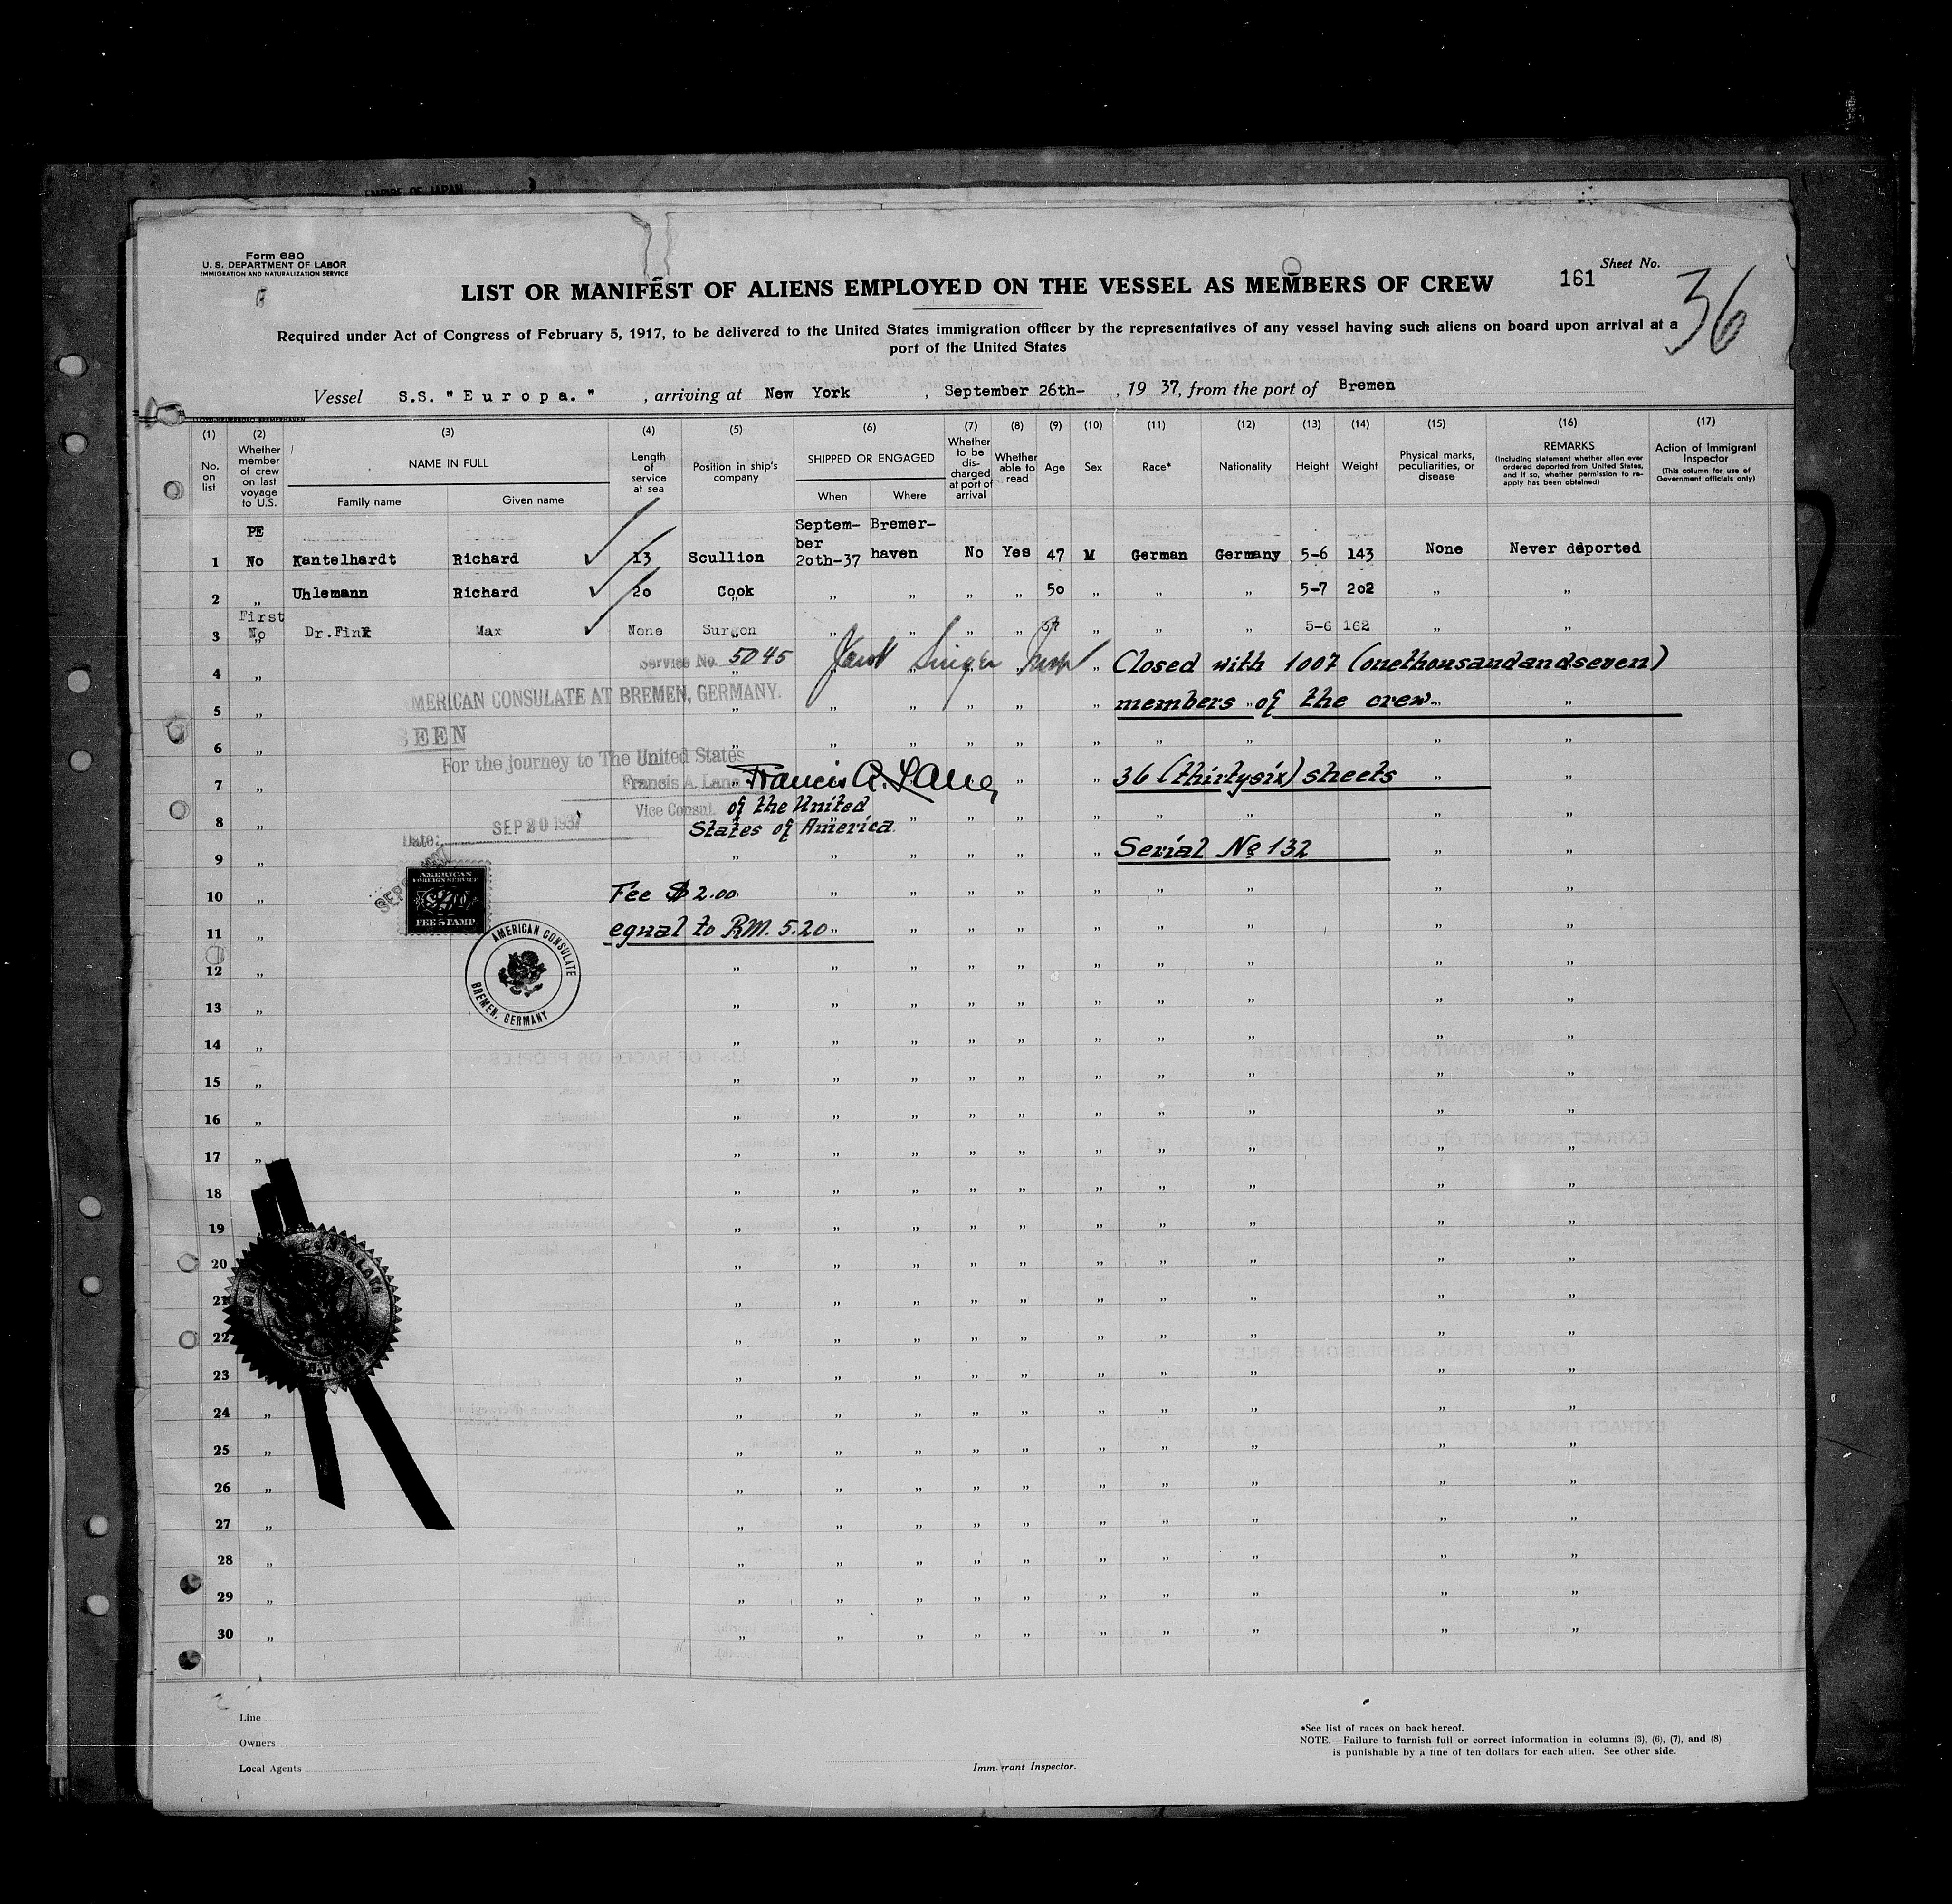 EMPIRE OF JAPAN
Form 680
U. S. DEPARTMENT OF LABOR
IMMIGRATION AND NATURALIZATION SERVICE
Sheet No.
161
36
LIST OR MANIFEST OF ALIENS EMPLOYED ON THE VESSEL AS MEMBERS OF CREW
Required under Act of Congress of February 5, 1917, to be delivered to the United States immigration officer by the representatives of any vessel having such aliens on board upon arrival at a
port of the United States
Vessel S.S. "Europa." , arriving at New York , September 26th- , 19 37, from the port of Bremen
(1) (2) (3) (4) (5) (6) (7) (8) (9) (10) (11) (12) (13) (14) (15) (16) (17)
No. on list
Whether member of crew on last voyage to U.S.
NAME IN FULL
Family name Given name
Length of service at sea
Position in ship's company
SHIPPED OR ENGAGED
When Where
Whether to be discharged at port of arrival
Whether able to read
Age
Sex
Race*
Nationality
Height
Weight
Physical marks, peculiarities, or disease
REMARKS
(Including statement whether alien ever ordered deported from United States, and if so, whether permission to re-apply has been obtained)
Action of Immigrant Inspector
(This column for use of Government officials only)
PE
1 No Kantelhardt Richard 13 Scullion September 20th-37 Bremerhaven No Yes 47 M German Germany 5-6 143 None Never deported
2 „ Uhlemann Richard 20 Cook „ „ „ „ 50 „ „ „ 5-7 202 „ „
First
3 No Dr.Fink Max None Surgon „ „ „ „ „ „ „ 5-6 162 „ „
4 Service No. 5045 Closed with 1007 (onethousandandseven)
AMERICAN CONSULATE AT BREMEN, GERMANY.
5 members of the crew.
SEEN
6
For the journey to The United States
7 Francis A. Lane Francis A. Lane 36 (thirtysix) sheets
Vice Consul of the United
8 States of America.
Date: SEP 20 1937
9 Serial No 132
AMERICAN
FOREIGN SERVICE
FEE STAMP
10 Fee $ 2.00
11 equal to RM. 5.20
AMERICAN CONSULATE
BREMEN, GERMANY
12
13
14
15
16
17
18
19
20
21
22
23
24
25
26
27
28
29
30
Line
Owners
Local Agents
Immigrant Inspector.
*See list of races on back hereof.
NOTE.—Failure to furnish full or correct information in columns (3), (6), (7), and (8)
is punishable by a fine of ten dollars for each alien. See other side.